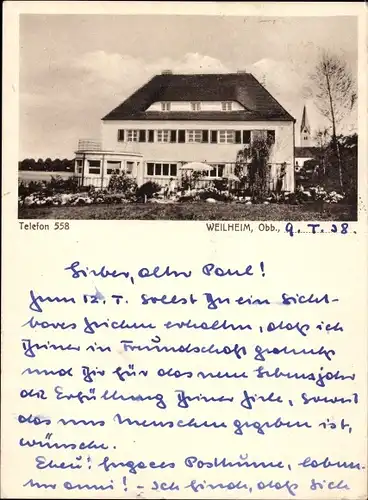 Telefon 558
WEILHEIM, Obb., 9. I. 38.
Lieber, alter Paul!
Zum 12. I. sollst Du ein Sicht-
bares Zeichen erhalten, daß ich
Deiner in Freundschaft gedenke
und Dir für das neue Lebensjahr
die Erfüllung Deiner Ziele, soweit
das uns Menschen gegeben ist,
wünsche.
Eheu! fugaces Posthume, labun-
tur anni! – Ich finde, daß Dich